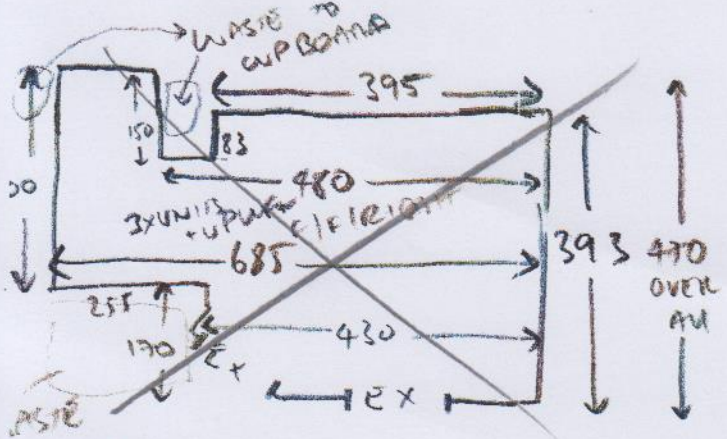 WASTE TO
CUPBOARD
395
150
83
480
3XUNITS
685
393
470
OVER
ALL
255
170
430
EX
EX